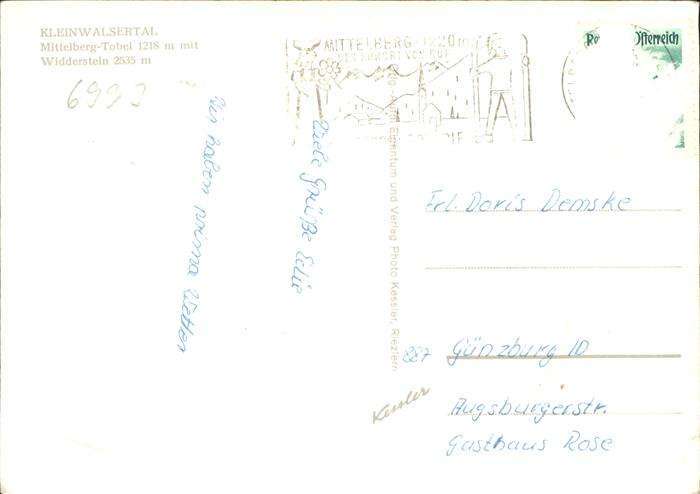 KLEINWALSERTAL
Mittelberg-Tobel 1218 m mit
Widderstein 2535 m
6993
MITTELBERG 1220 m
Österreich
Wir haben prima Wetter
Viele Grüße
Eigentum und Verlag Photo Kessler, Riezlern
Frl. Doris Demske
887 Günzburg 10
Kessler
Augsburgerstr.
Gasthaus Rose